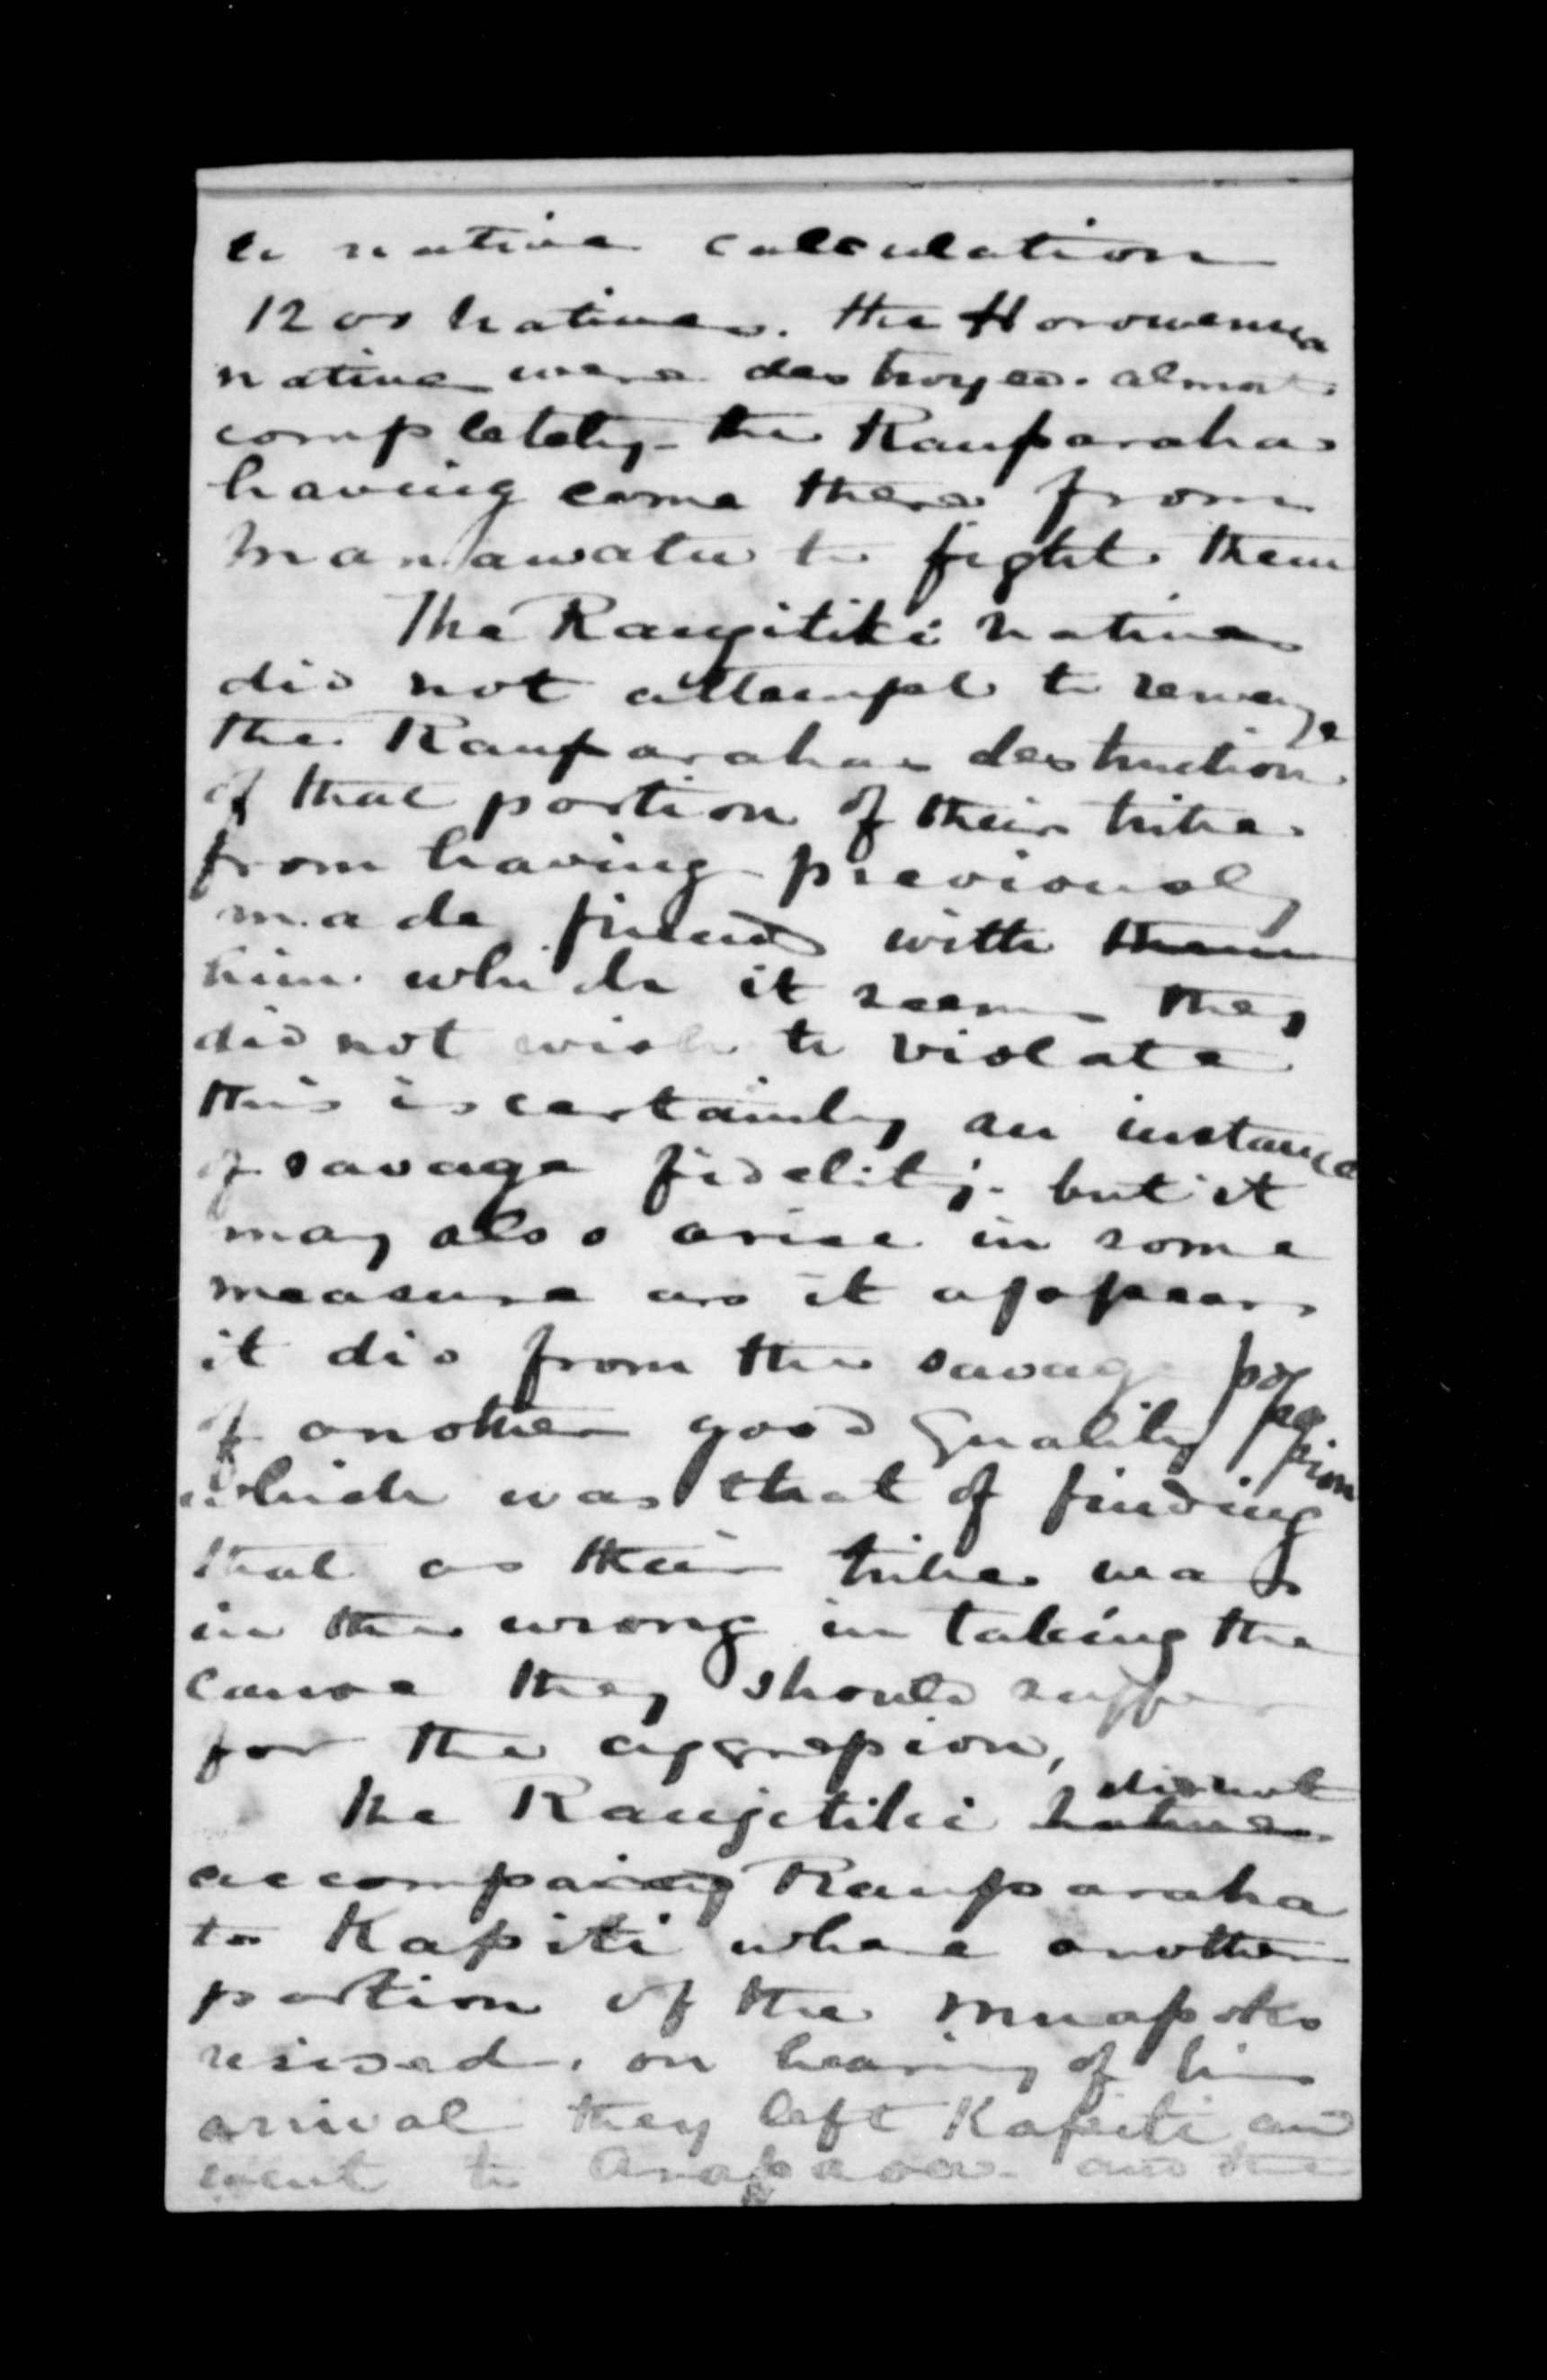 to native calculation
1200 natives. the Horowenua
native were destroyed. almost
completely - the Rauparaha
having come there from
Manawatu to fight them
The Rangitiki natives
did not attempt to revenge
the Rauparahas destruction
of that portion of their tribe
from having previously
made friends with them
him which it seems they
did not wish to violate
this is certainly an instance
of savage fidelity. but it
may also arise in some
measure as it appears
it did from the savage possession
of another good quality
which was that of finding
that as their tribe was
in the wrong in taking the
canoe they should suffer
for the aggression,
did not
the Rangitiki natives
accompany Rauparaha
to Kapiti where another
portion of the Muapokos
resised. on hearing of his
arrival they left Kapiti and
went to Arapaoa and the